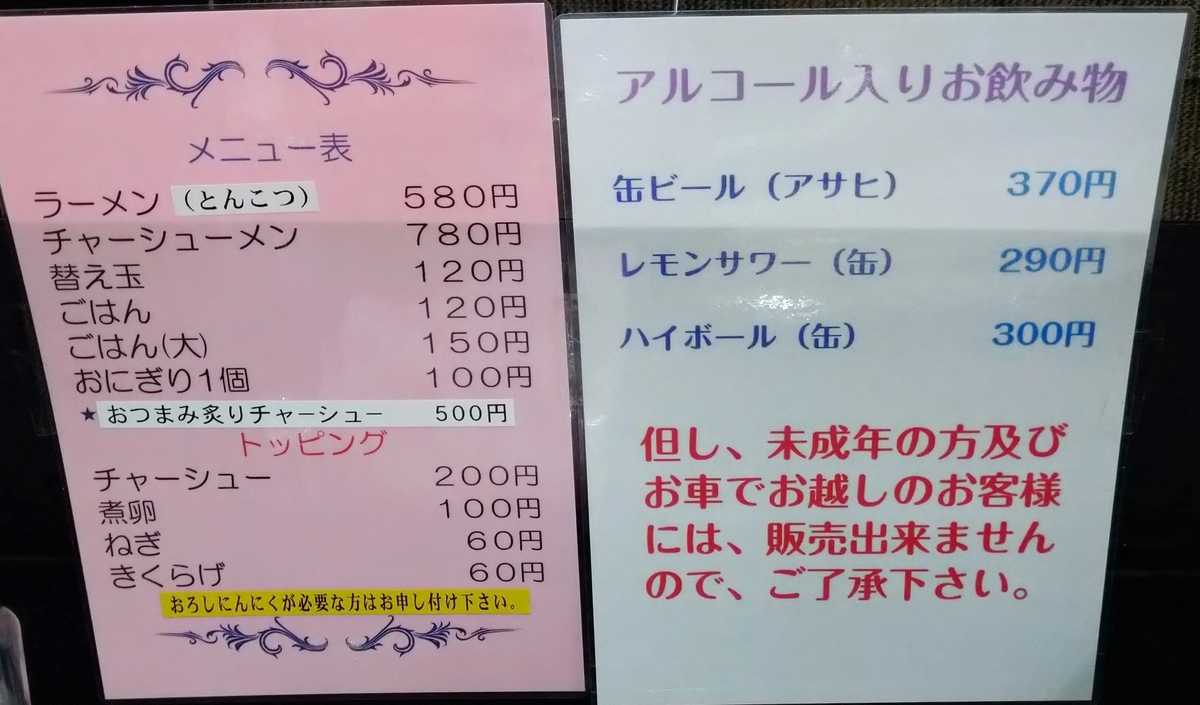 メニュー表
ラーメン (とんこつ) 580円
チャーシューメン 780円
替え玉 120円
ごはん 120円
ごはん(大) 150円
おにぎり1個 100円
★おつまみ炙りチャーシュー 500円
トッピング
チャーシュー 200円
煮卵 100円
ねぎ 60円
きくらげ 60円
おろしにんにくが必要な方はお申し付け下さい。
アルコール入りお飲み物
缶ビール（アサヒ） 370円
レモンサワー（缶） 290円
ハイボール（缶） 300円
但し、未成年の方及び
お車でお越しのお客様
には、販売出来ません
ので、ご了承下さい。